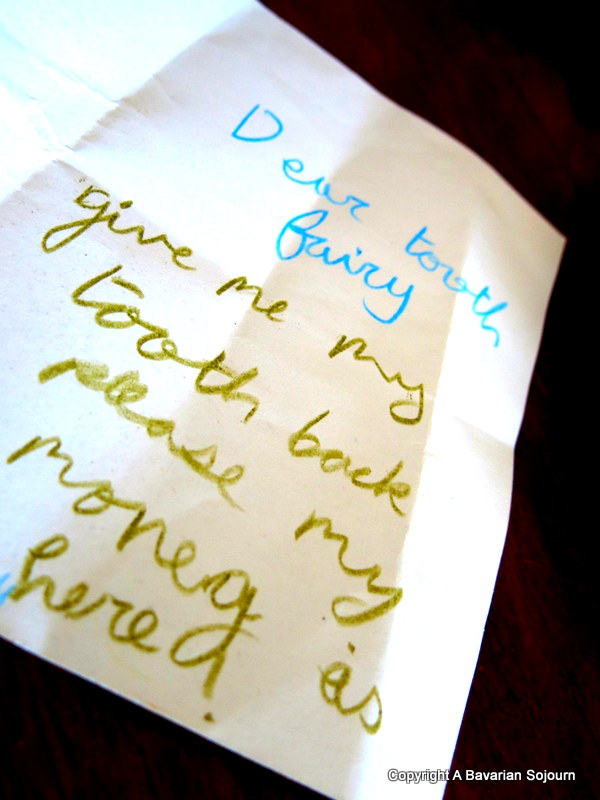 Dear tooth
fairy
give me my
tooth back
please my
money is
here!
Copyright A Bavarian Sojourn